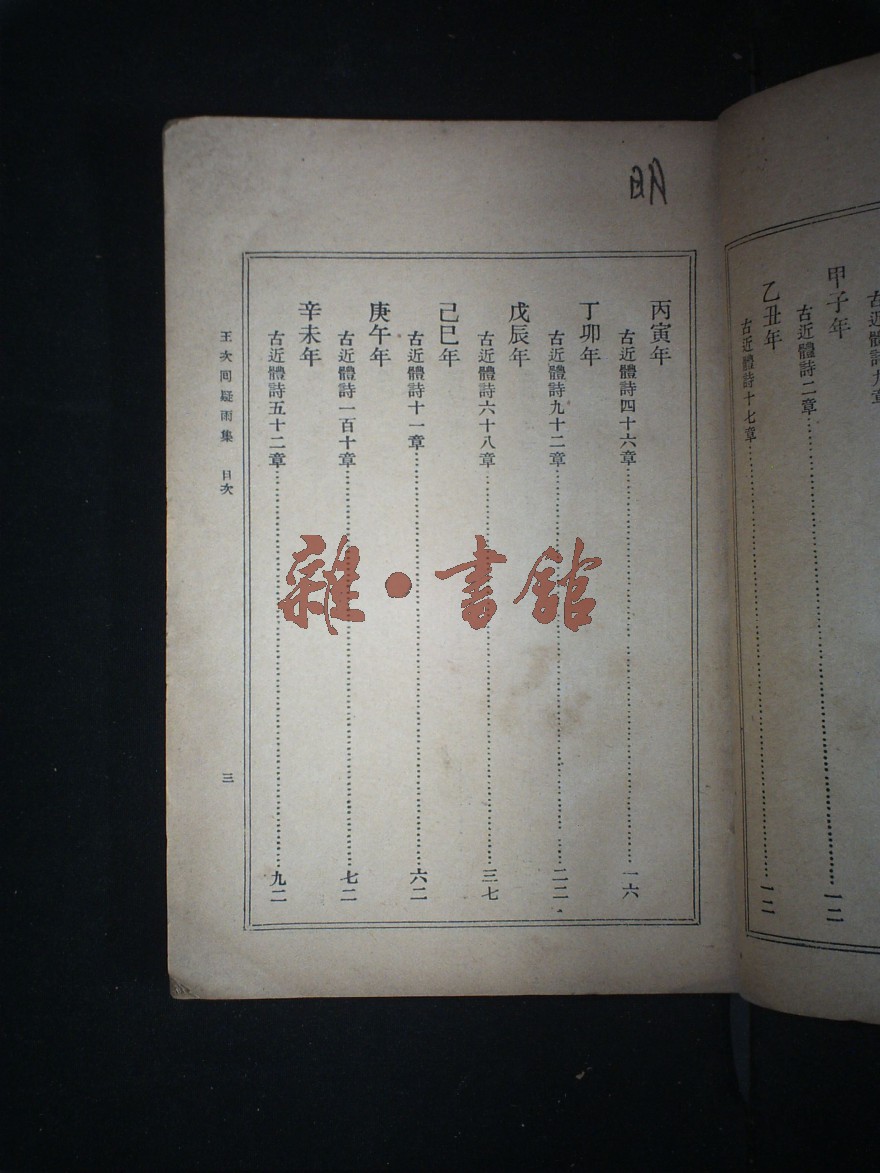 甲子年
古近體詩二章……一二
乙丑年
古近體詩十七章……一二
明
丙寅年
古近體詩四十六章……一六
丁卯年
古近體詩九十二章……二二
戊辰年
古近體詩六十八章……三七
己巳年
古近體詩十一章……六二
庚午年
古近體詩一百十章……七二
辛未年
古近體詩五十二章……九二
王次回疑雨集 目次
三
雜·書館